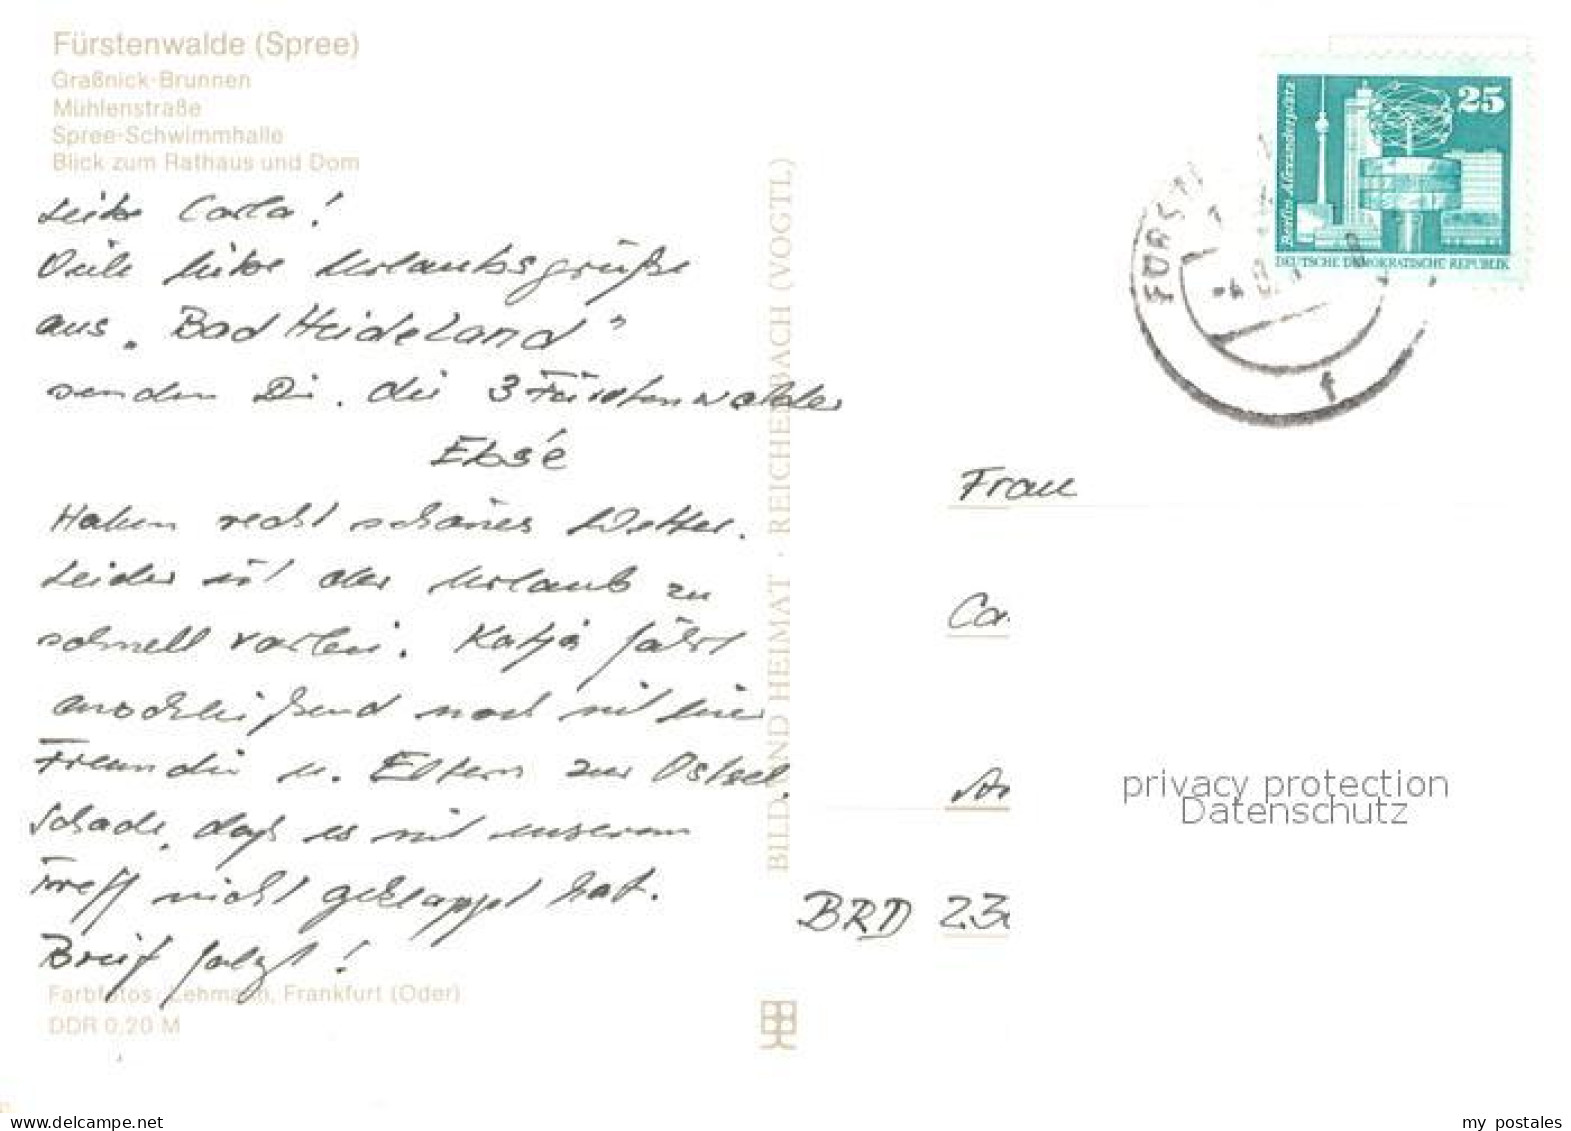 Fürstenwalde (Spree)
Graßnick-Brunnen
Mühlenstraße
Spree-Schwimmhalle
Blick zum Rathaus und Dom
Liebe Carla!
Viele liebe Urlaubsgrüße
aus „Bad Heideland"
senden Dir die 3 Fürstenwalder
Haben recht schönes Wetter.
Leider ist der Urlaub zu
schnell vorbei. Katja fährt
anschließend noch mit einer
Freundin u. Eltern zur Ostsee.
Schade, daß es mit unserem
Treff nicht geklappt hat.
Brief folgt!
Farbfotos: Lehmann, Frankfurt (Oder)
DDR 0,20 M
BILD UND HEIMAT · REICHENBACH (VOGTL)
Berlin-Alexanderplatz
25
DEUTSCHE DEMOKRATISCHE REPUBLIK
FÜRST
f
Frau
Ca
BRD 23
privacy protection
Datenschutz
www.delcampe.net
my_postales